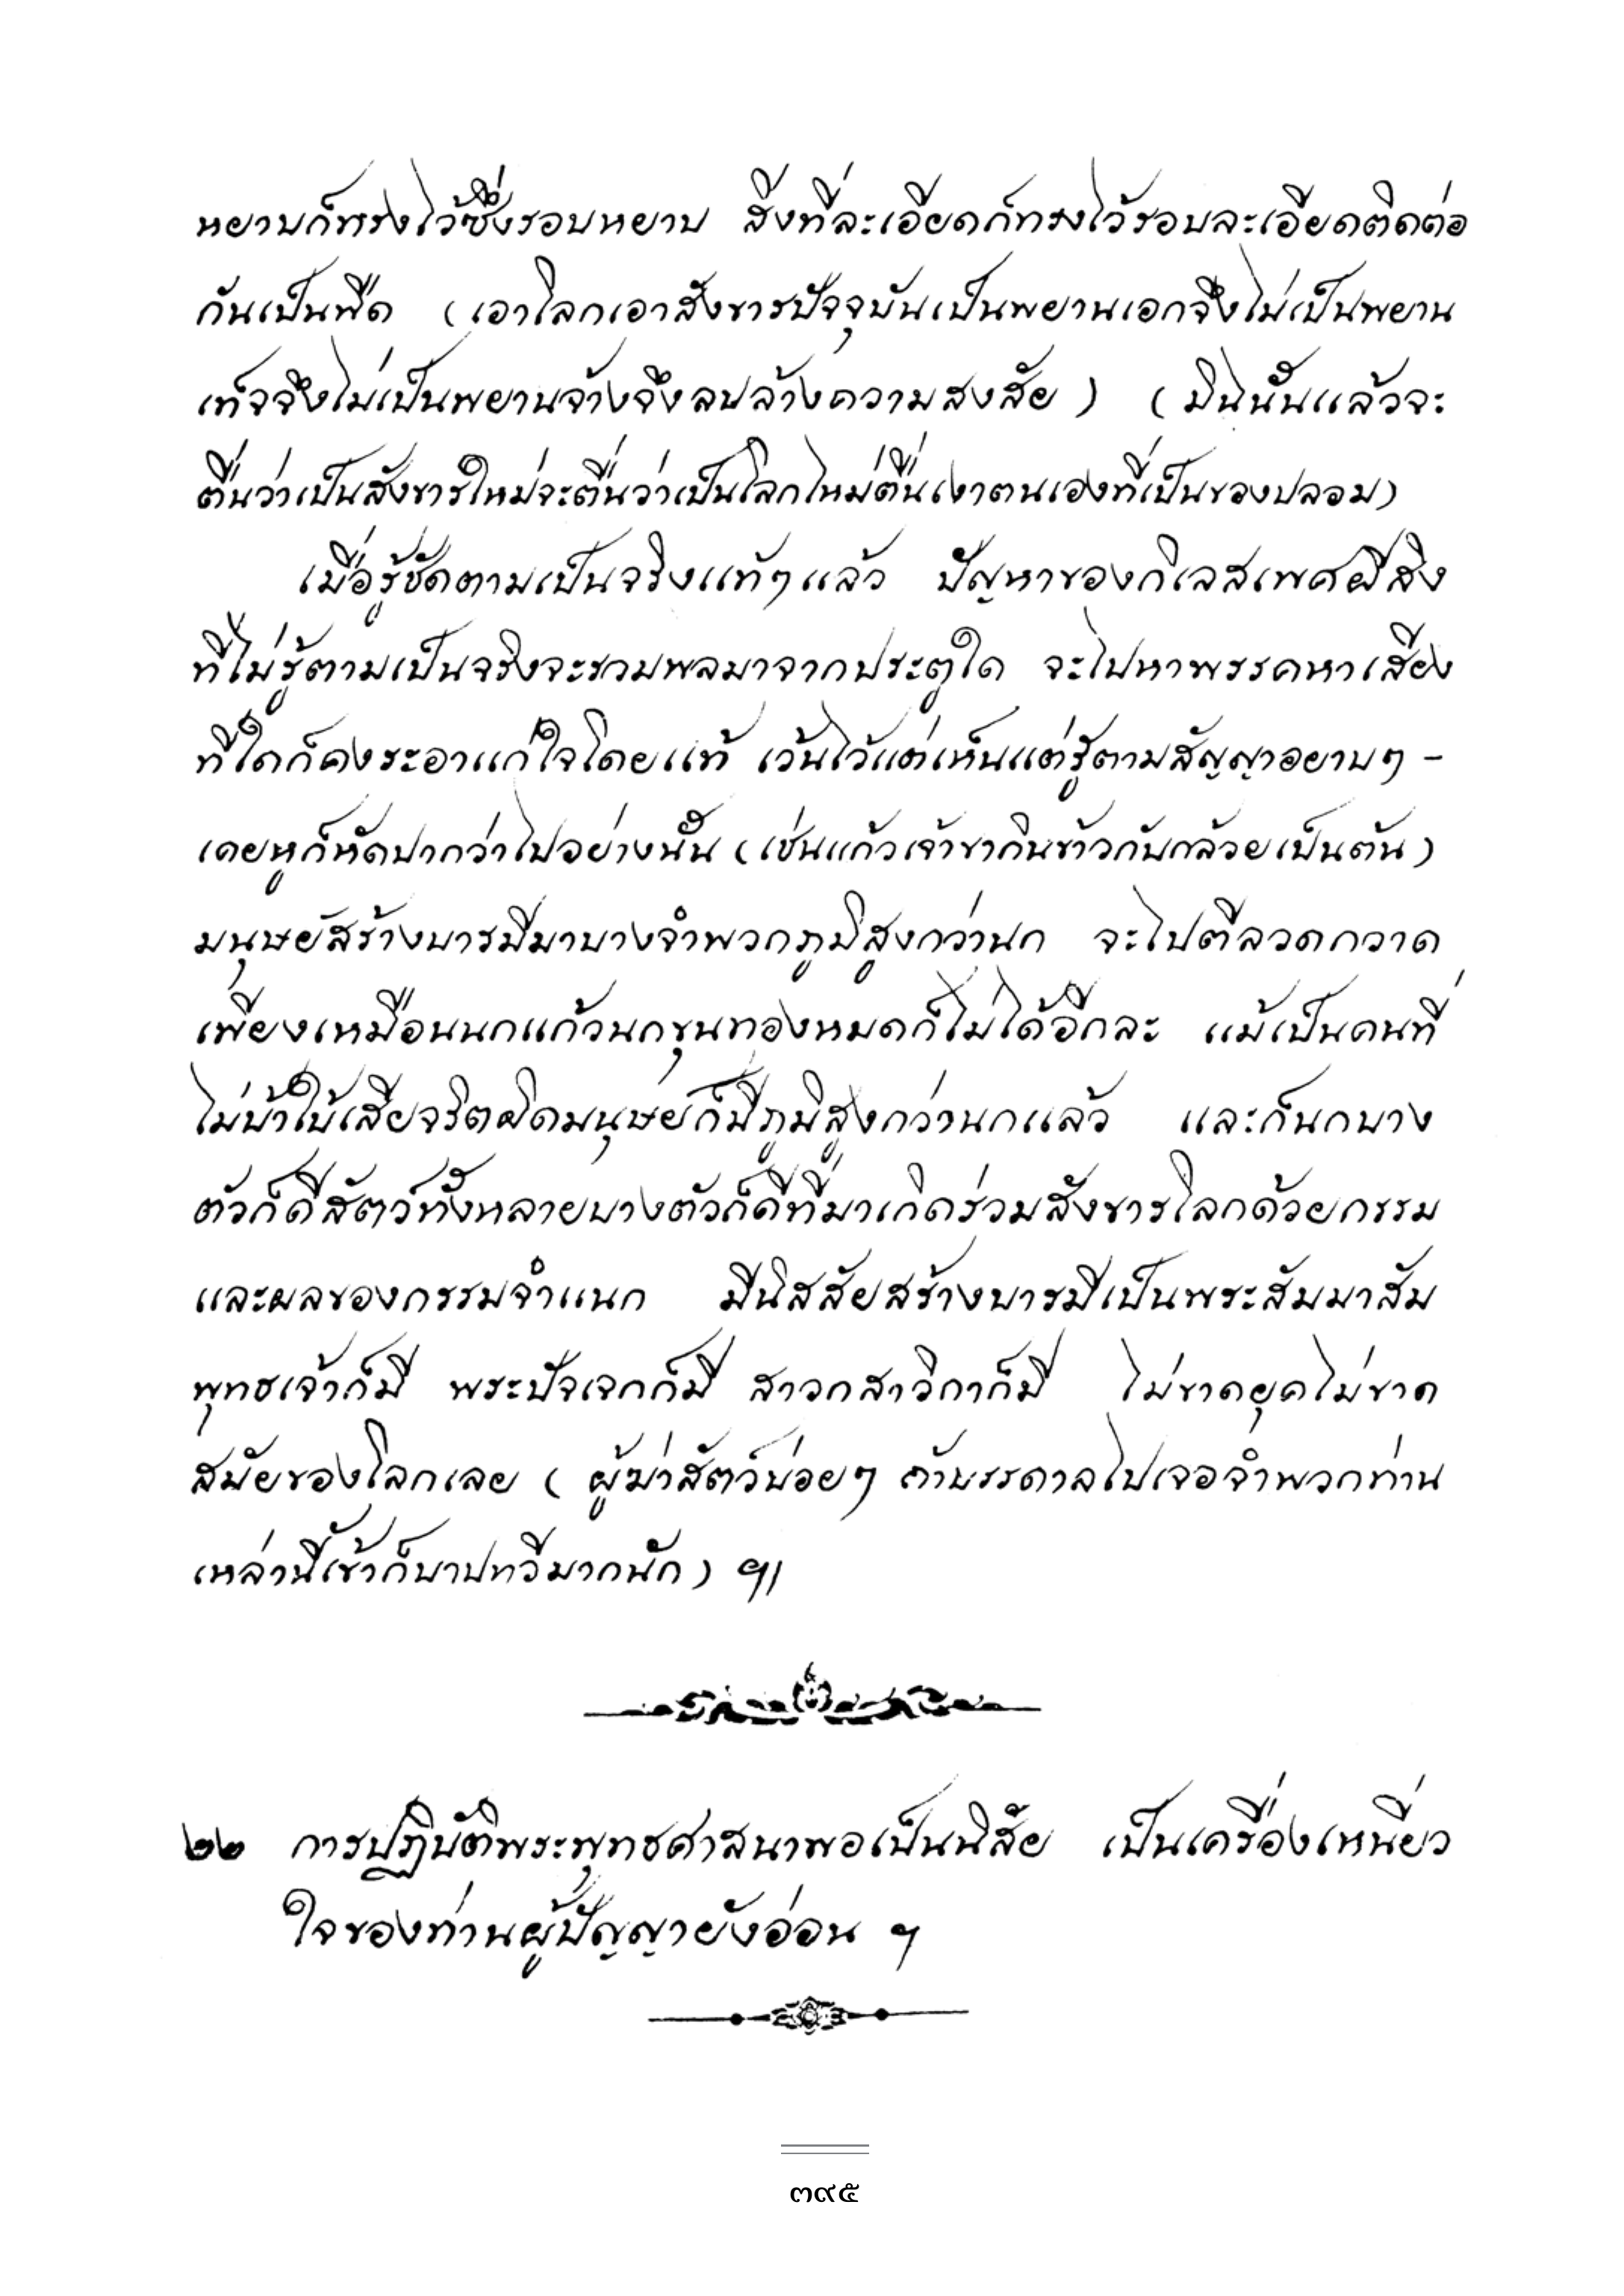 หยาบก็ทรงไว้ซึ่งรอบหยาบ สิ่งที่ละเอียดก็ทรงไว้รอบละเอียดติดต่อ
กันเป็นพืด (เอาโลกเอาสังขารปัจจุบันเป็นพยานเอกจึงไม่เป็นพยาน
เท็จจึงไม่เป็นพยานจ้างจึงลบล้างความสงสัย) (มินั้นแล้วจะ
ตื่นว่าเป็นสังขารใหม่จะตื่นว่าเป็นโลกใหม่ตื่นเงาตนเองที่เป็นของปลอม)
เมื่อรู้ชัดตามเป็นจริงแท้ๆแล้ว ปัญหาของกิเลสเพศผีสิง
ที่ไม่รู้ตามเป็นจริงจะรวมพลมาจากประตูใด จะไปหาพรรคหาเสียง
ที่ใดก็คงระอาแก่ใจโดยแท้ เว้นไว้แต่เห็นแต่รู้ตามสัญญาอยาบๆ -
เคยหูก็หัดปากว่าไปอย่างนั้น (เช่นแก้วเจ้าขากินข้าวกับกล้วยเป็นต้น)
มนุษย์สร้างบารมีมาบางจำพวกภูมิสูงกว่านก จะไปตีลวดกวาด
เพียงเหมือนนกแก้วนกขุนทองหมดก็ไม่ได้อีกละ แม้เป็นคนที่
ไม่บ้าใบ้เสียจริตผิดมนุษย์ก็มีภูมิสูงกว่านกแล้ว และก็นกบาง
ตัวก็ดีสัตว์ทั้งหลายบางตัวก็ดีที่มาเกิดร่วมสังขารโลกด้วยกรรม
และผลของกรรมจำแนก มีนิสสัยสร้างบารมีเป็นพระสัมมาสัม
พุทธเจ้าก็มี พระปัจเจกก็มี สาวกสาวิกาก็มี ไม่ขาดยุคไม่ขาด
สมัยของโลกเลย (ผู้ฆ่าสัตว์บ่อยๆ ถ้าบรรดาลไปเจอจำพวกท่าน
เหล่านี้เข้าก็บาปทวีมากนัก) ฯ|
๒๒ การปฏิบัติพระพุทธศาสนาพอเป็นนิสัย เป็นเครื่องเหนี่ยว
ใจของท่านผู้ปัญญายังอ่อน ฯ
๓๙๕